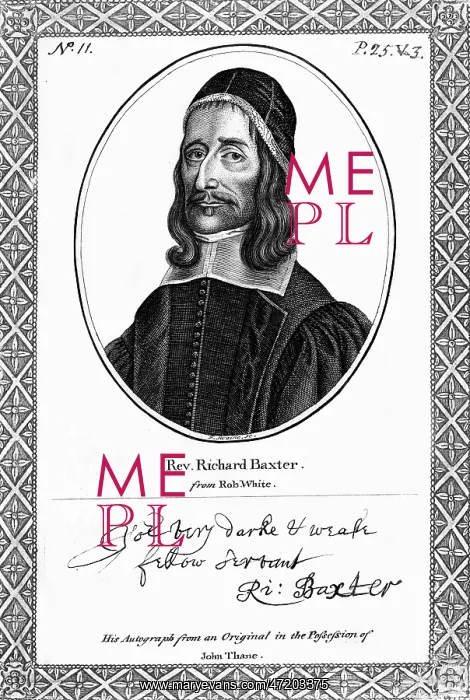 No. 11.
P. 25. V. 3.
ME
PL
Rev. Richard Baxter.
from Rob. White.
ME
PL
very darke & weake
fellow servant
Ri: Baxter
His Autograph from an Original in the Possession of
John Thane.
www.maryevans.com/47203375